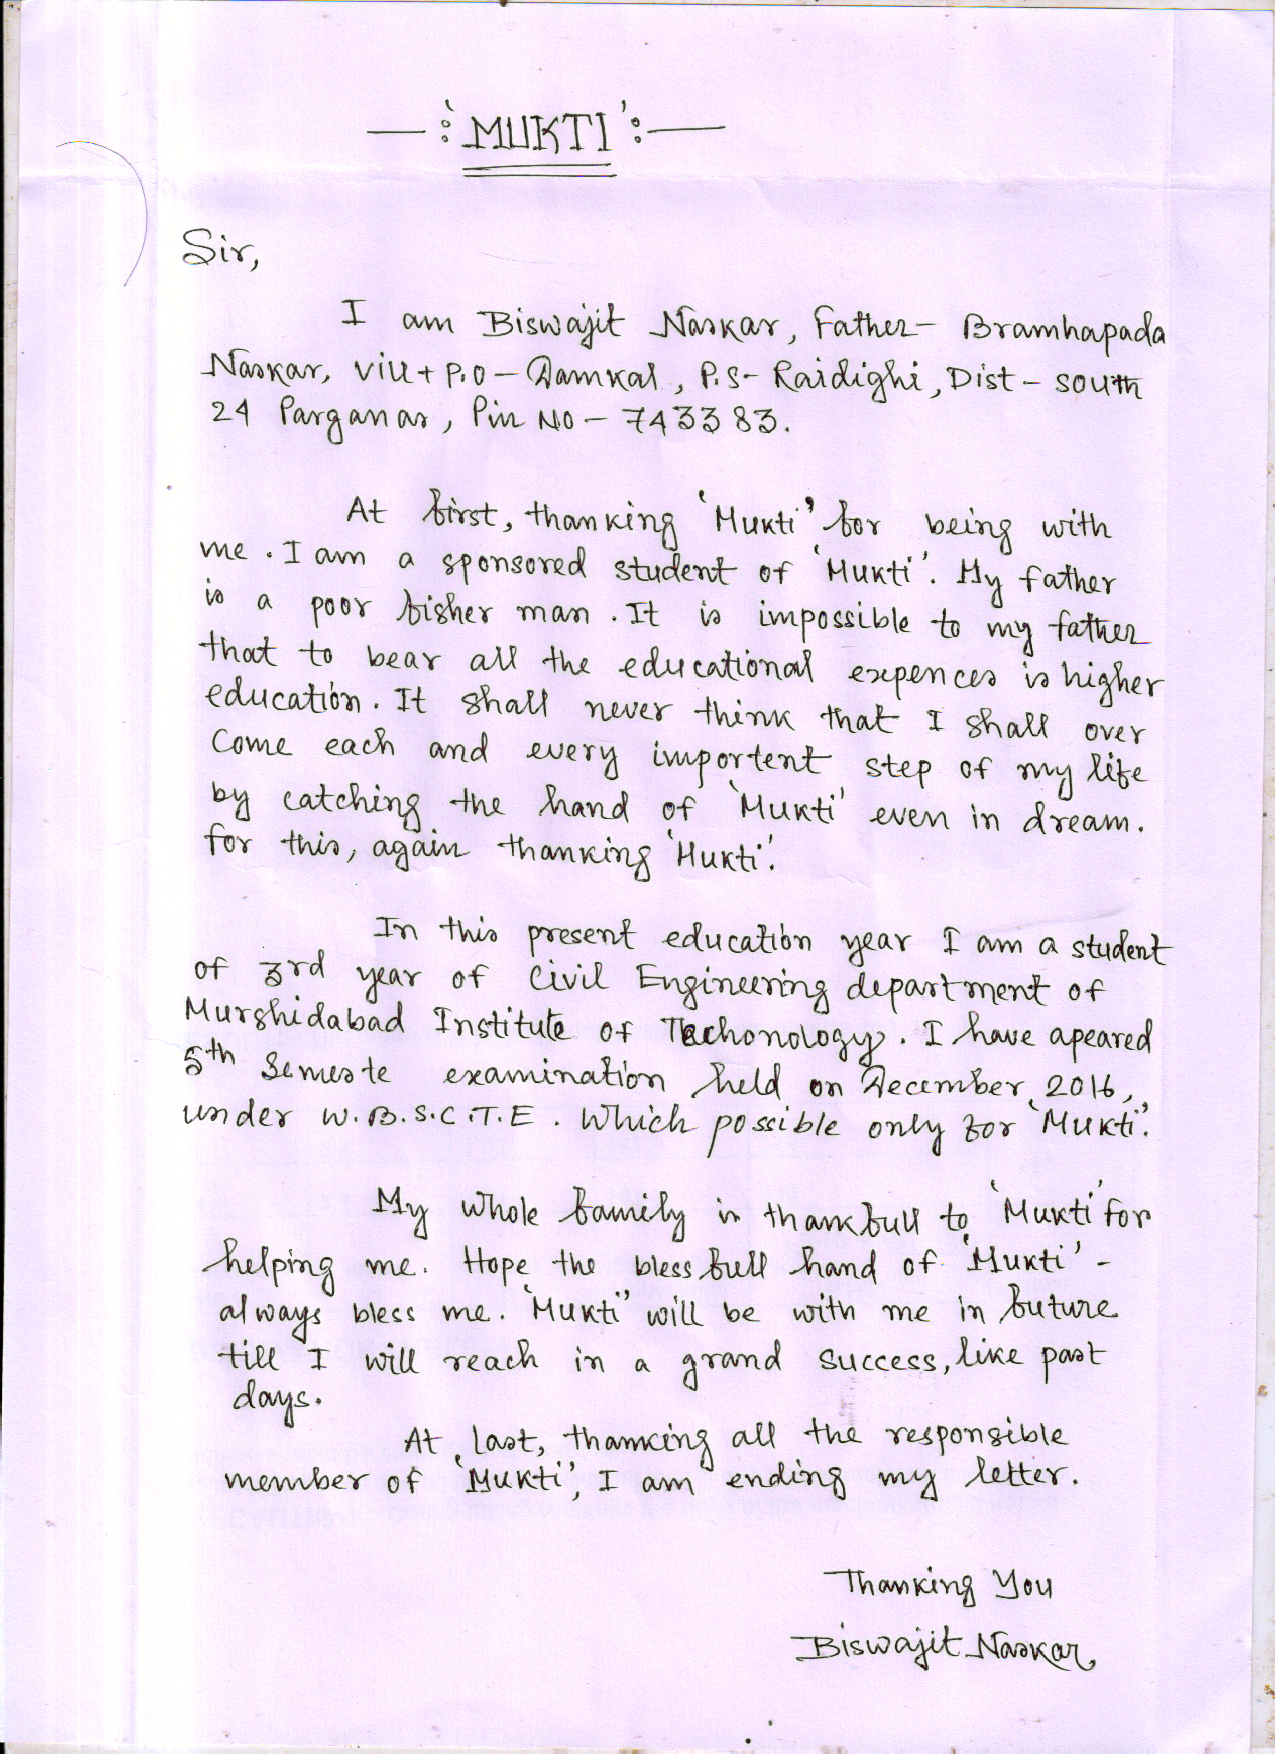 —: 'MUKTI' :—
Sir,
I am Biswajit Naskar, Father- Bramhapada
Naskar, Vill+P.O - Damkal, P.S- Raidighi, Dist - south
24 Parganas, Pin No - 743383.
At first, thanking 'Mukti' for being with
me. I am a sponsored student of 'Mukti'. My father
is a poor fisher man. It is impossible to my father
that to bear all the educational expences is higher
education. It shall never think that I shall over
come each and every importent step of my life
by catching the hand of 'Mukti' even in dream.
for this, again thanking 'Mukti'.
In this present education year I am a student
of 3rd year of Civil Engineering department of
Murshidabad Institute of Techonology. I have apeared
5th Semeste examination held on December, 2016,
under W.B.S.C.T.E. Which possible only for 'Mukti'.
My whole family is thankfull to 'Mukti' for
helping me. Hope the blessfull hand of 'Mukti' -
always bless me. 'Mukti' will be with me in future
till I will reach in a grand success, like past
days.
At last, thanking all the responsible
member of 'Mukti', I am ending my letter.
Thanking You
Biswajit Naskar